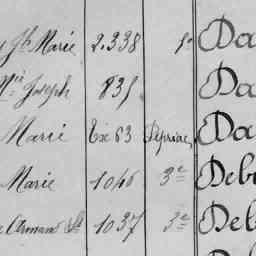 Jh Marie 2.338 1e Da
Mie Joseph 835 Da
Marie Ex 63 Da
Marie 1046 3e Deb
Armand 1037 3e Deb